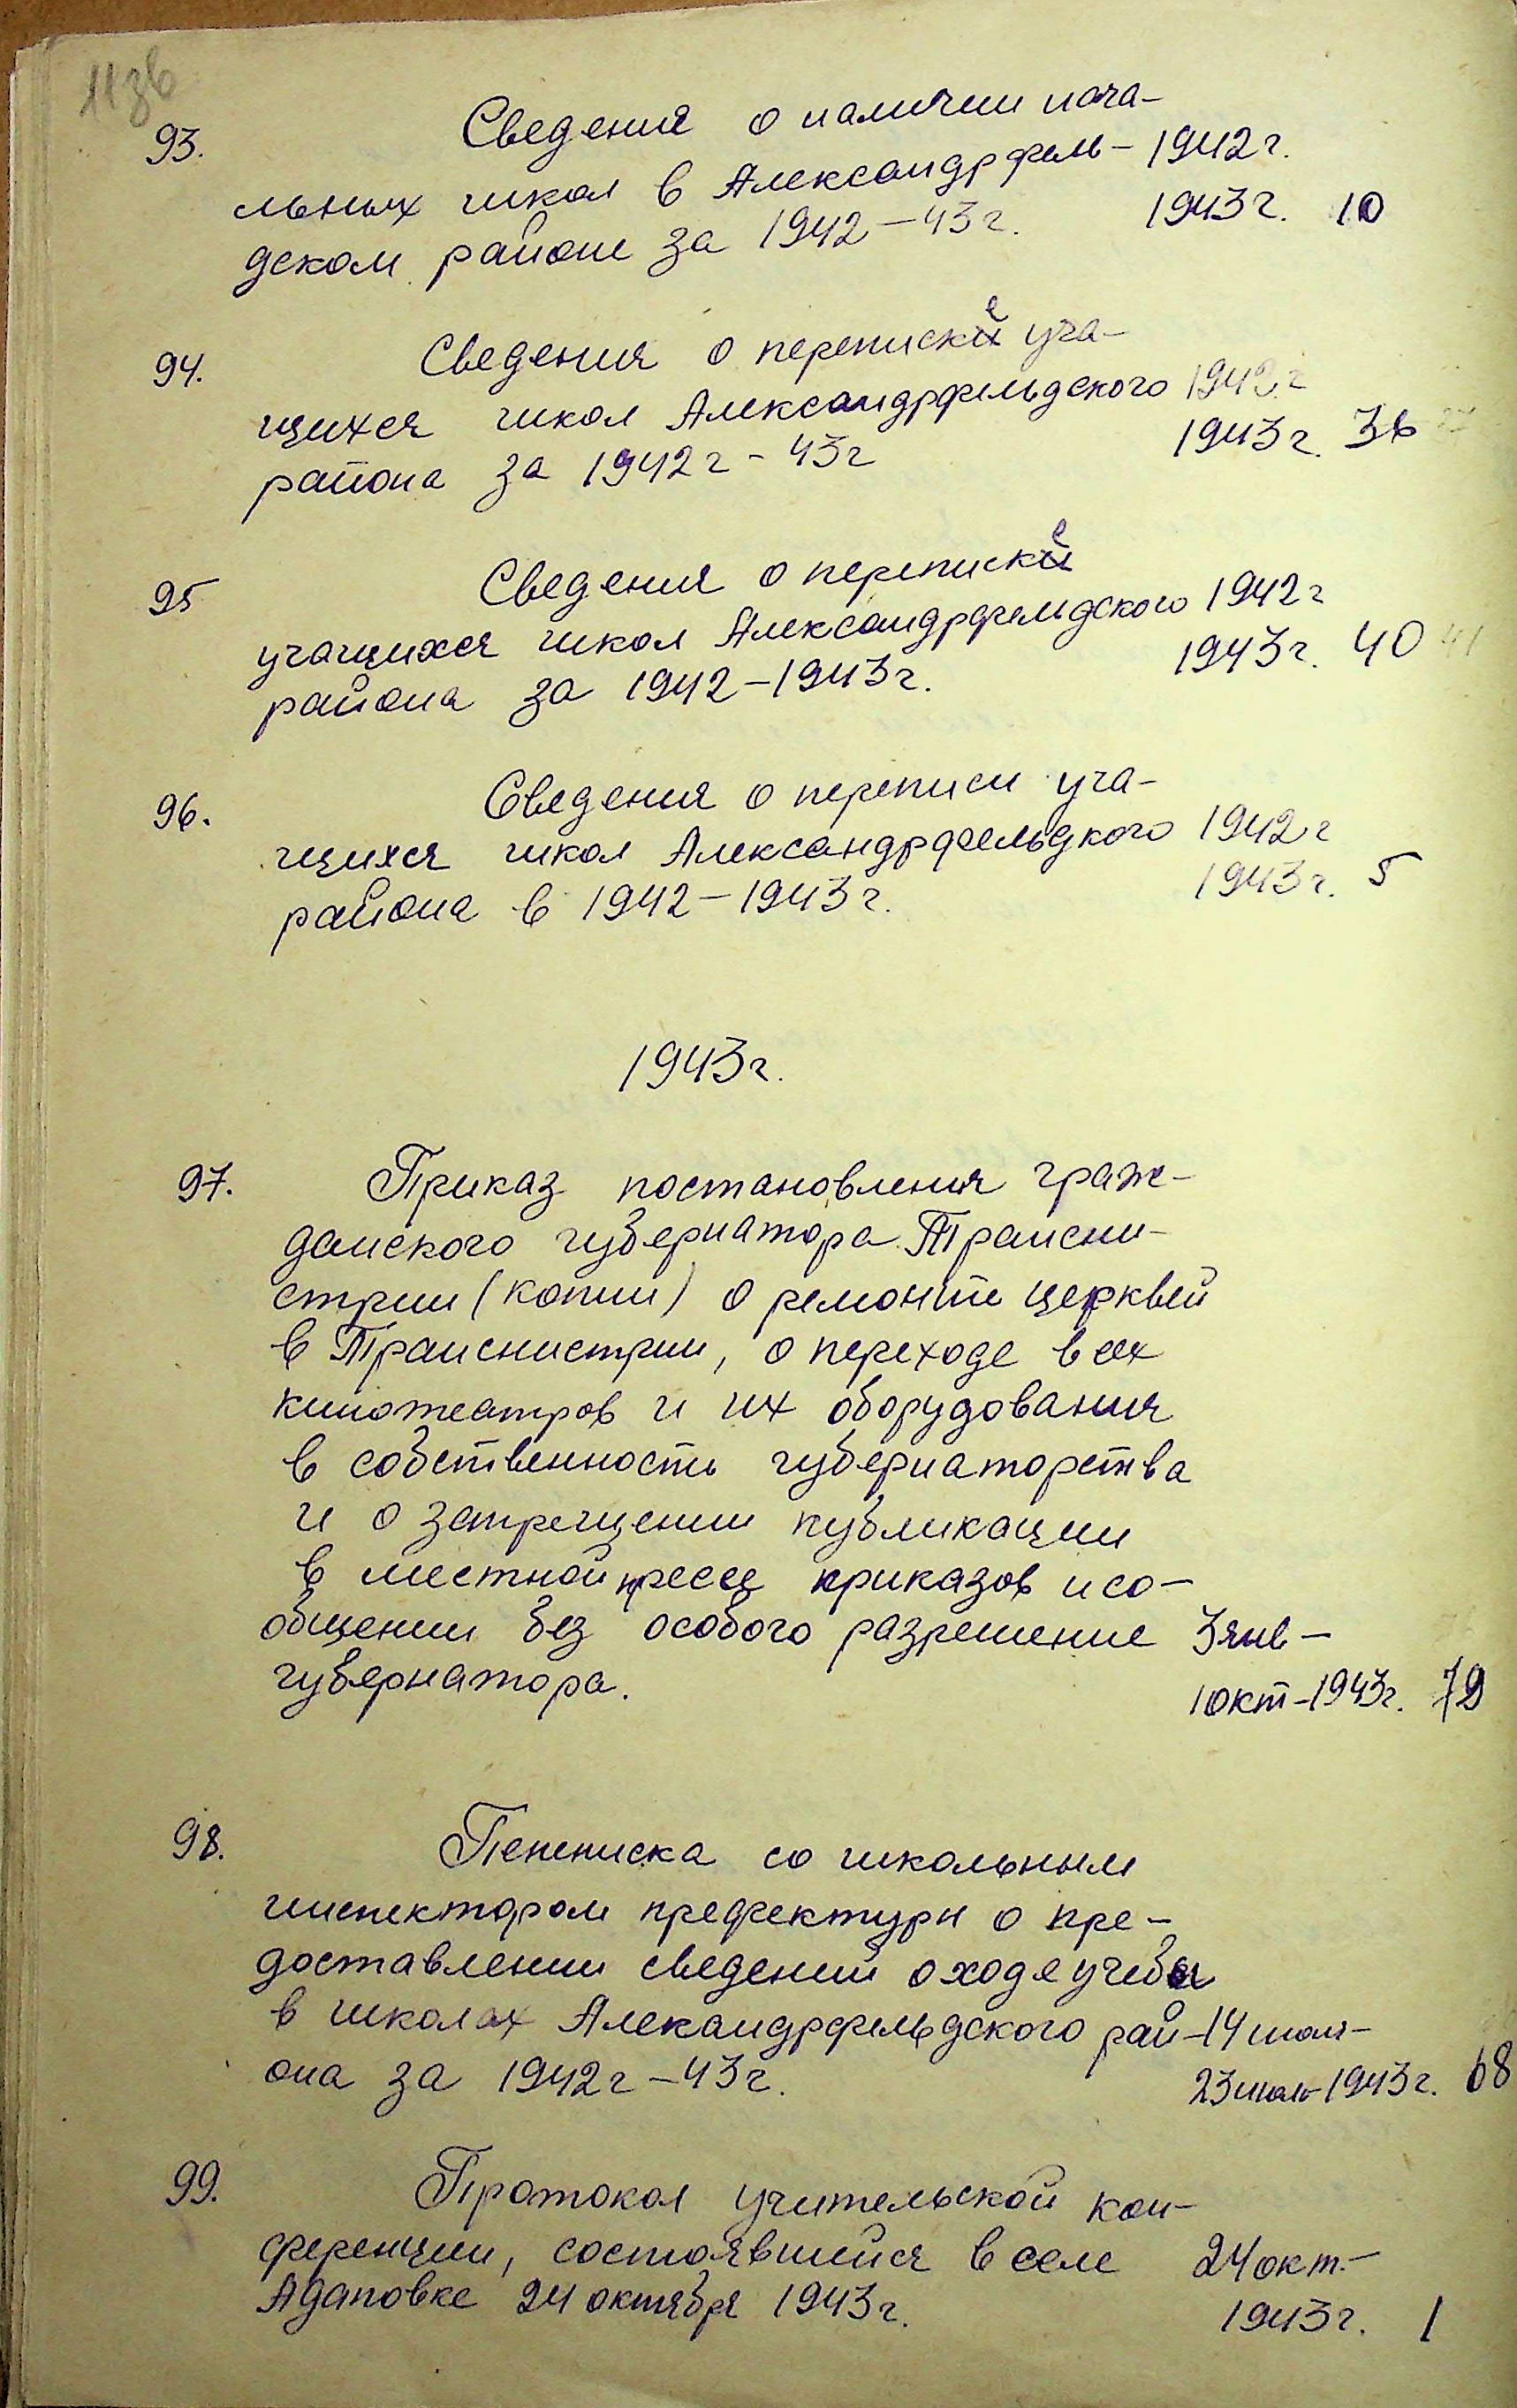 93. Сведения о наличии нача-
льных школ в Александрфель- 1942г.
дском районе за 1942-43г. 1943г. 10
94. Сведения о переписке уча-
щихся школ Александрфельдского 1942г
района за 1942г-43г 1943г. 36
95 Сведения о переписке
учащихся школ Александрфельдского 1942г
района за 1942-1943г. 1943г. 40 41
96. Сведения о переписи уча-
щихся школ Александрфельдкого 1942г
района в 1942-1943г. 1943г. 5
1943г.
97. Приказ постановления граж-
данского губернатора Трансни-
стрии (копии) о ремонте церквей
в Транснистрии, о переходе всех
кинотеатров и их оборудования
в собственность губернаторства
и о запрещении публикации
в местной прессе приказов и со-
общении без особого разрешение 3 янв-
губернатора. 1 окт-1943г. 79
98. Пенписка со школьным
инспектором префектуры о пре-
доставлении сведений о ходе учебы
в школах Алекандрфельдского рай- 14
она за 1942г-43г. 23 1943г. 68
99. Протокол учительской кон-
ференции, состоявшийся в селе 24 окт.-
Адаповке 24 октября 1943г. 1943г. 1